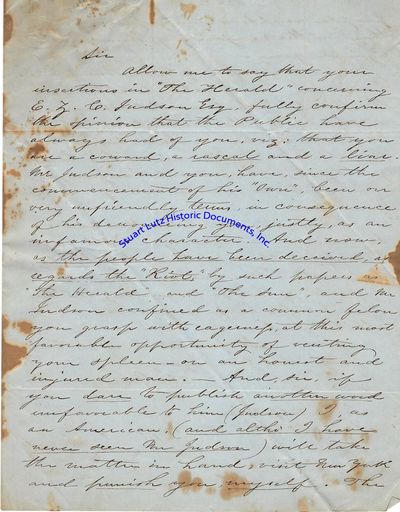 Sir
Allow me to say that your
insertions in "The Herald" concerning
E. Z. C. Judson Esq, fully confirm
the opinion that the Public have
always had of you, viz: that you
are a coward, a rascal and a liar.
Mr Judson and you, have, since the
commencement of his "Own", been on
very unfriendly terms, in consequence
of his
infamous character. And now,
as the people have been deceived, as
regards the "Riot," by such papers as
"The Herald" and "The Sun" and Mr
Judson confined as a common felon
you grasp with eagerness, at this most
favorable opportunity of venting
your spleen on an honest and
injured man. — And, sir, if
you dare to publish another word
unfavorable to him (Judson) I, as
an American, (and altho' I have
never seen Mr Judson) will take
the matter in hand, visit New York
and punish you myself. The
Stuart Lutz Historic Documents, Inc.